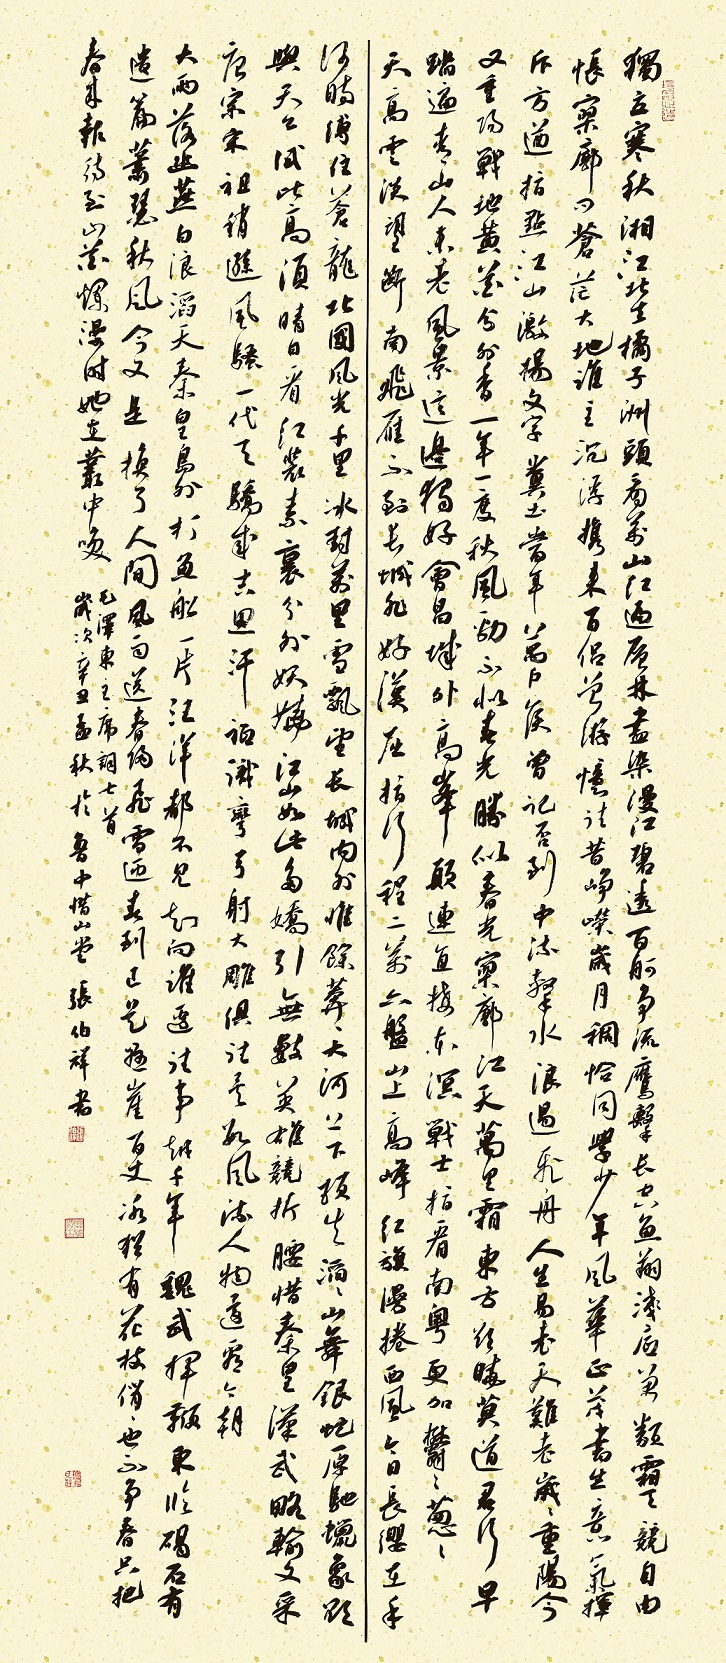 獨立寒秋湘江北去橘子洲頭看萬山紅遍層林盡染漫江碧透百舸争流鷹擊長空魚翔淺底萬類霜天競自由
悵寥廓問蒼茫大地誰主沉浮攜來百侣曾游憶往昔崢嶸歲月稠恰同學少年風華正茂書生意氣揮
斥方遒指點江山激揚文字糞土當年萬户侯曾記否到中流擊水浪遏飛舟人生易老天難老歲〻重陽今
又重陽戰地黄花分外香一年一度秋風勁不似春光勝似春光寥廓江天萬里霜東方欲曉莫道君行早
踏遍青山人未老風景這邊獨好會昌城外高峰顛連直接東溟戰士指看南粤更加鬱〻葱〻
天高雲淡望斷南飛雁不到長城非好漢屈指行程二萬六盤山上高峰紅旗漫捲西風今日長纓在手
何時縛住蒼龍北國風光千里冰封萬里雪飄望長城内外惟餘莽〻大河上下頓失滔〻山舞銀蛇原馳蠟象欲
與天公試比高須晴日看紅裝素裹分外妖嬈江山如此多嬌引無數英雄競折腰惜秦皇漢武略輸文采
唐宗宋祖稍遜風騷一代天驕成吉思汗祗識彎弓射大雕俱往矣數風流人物還看今朝
大雨落幽燕白浪滔天秦皇島外打魚船一片汪洋都不見知向誰邊往事越千年魏武揮鞭東臨碣石有
遺篇蕭瑟秋風今又是換了人間風雨送春歸飛雪迎春到已是懸崖百丈冰猶有花枝俏〻也不争春只把
春來報待到山花爛漫時她在叢中笑
毛澤東主席詞七首
歲次辛丑孟秋於魯中惜山堂張伯祥書